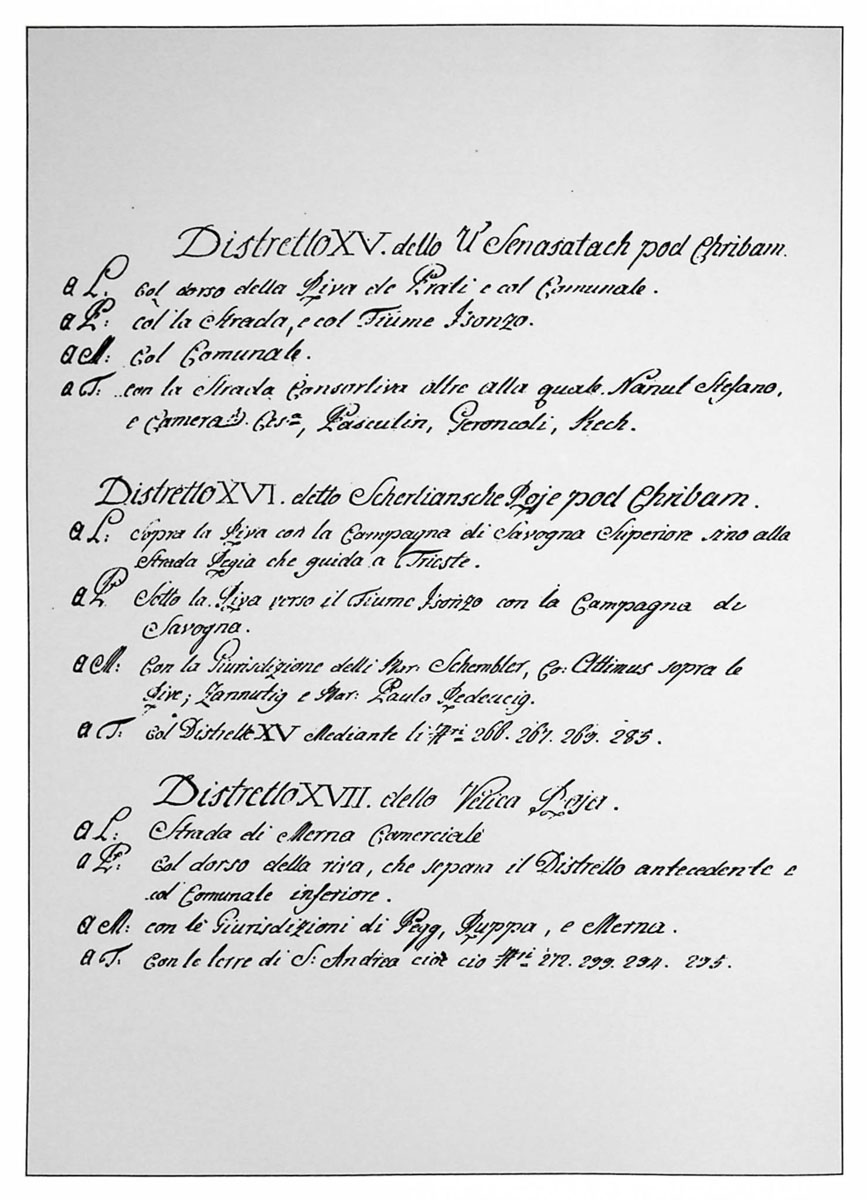 Distretto XV. dello U' Senasatach pod Chribam.
a L. Col dorso della Riva de Prati e col Comunale.
a P: còl la Strada, e col Fiume Isonzo.
a M: Col Comunale.
a T: con la Strada Consortiva oltre alla quale Nanut Stefano,
e Camera Ces.a, Pasculin, Geroncoli, Kech.
Distretto XVI. detto Scherliansche Poje pod Chribam.
a L: sopra la Riva con la Campagna di Savogna Superiore sino alla
Strada Regia che guida a Trieste.
a P. Sotto la Riva verso il Fiume Isonzo con la Campagna di
Savogna.
a M: Con la Giurisdizione delli Schembler, Co: Attimus sopra le
Rive; Zannutig e Paulo Pedeucig.
a T: Col Distretto XV Mediante li Nri 266. 267. 269. 285.
Distretto XVII. dello Velica Poja.
a L: Strada di Merna Comerciale
a P: Col dorso della riva, che separa il Distretto antecedente e
col Comunale inferiore.
a M: con le Giurisdizioni di Pegg, Ruppa, e Merna.
a T. Con le terre di S: Andrea cioè cio Nri 272. 299. 294. 295.